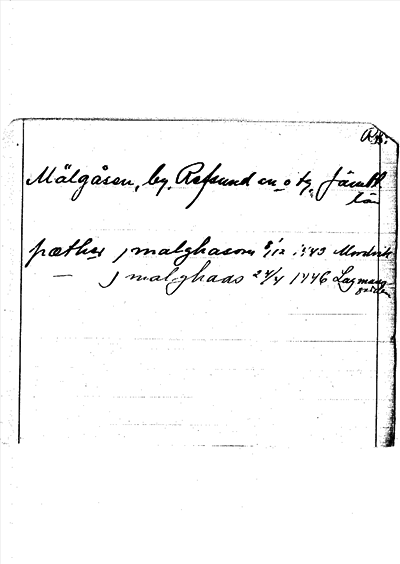 Rä.
Mälgåsen, by, Refsund sn o tg, Jämtl.
län
pæther j malghasom 8/12 1443 Mordvik
— j malghaas 24/4 1446 Lagmans-